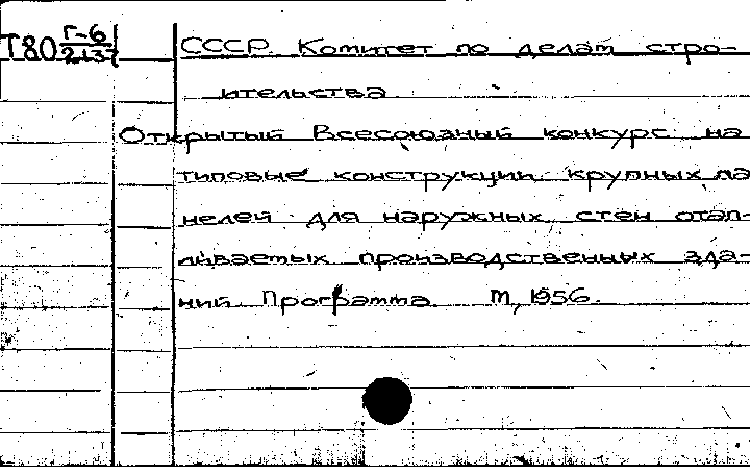 Т80 Г-6 СССР. Комитет по делам стро-
ительства
Открытый Всесоюзный конкурс на
типовые конструкции крупных па
нелей для наружных стен отап-
ливаемых производственных зда-
ний. Программа. М, 1956.